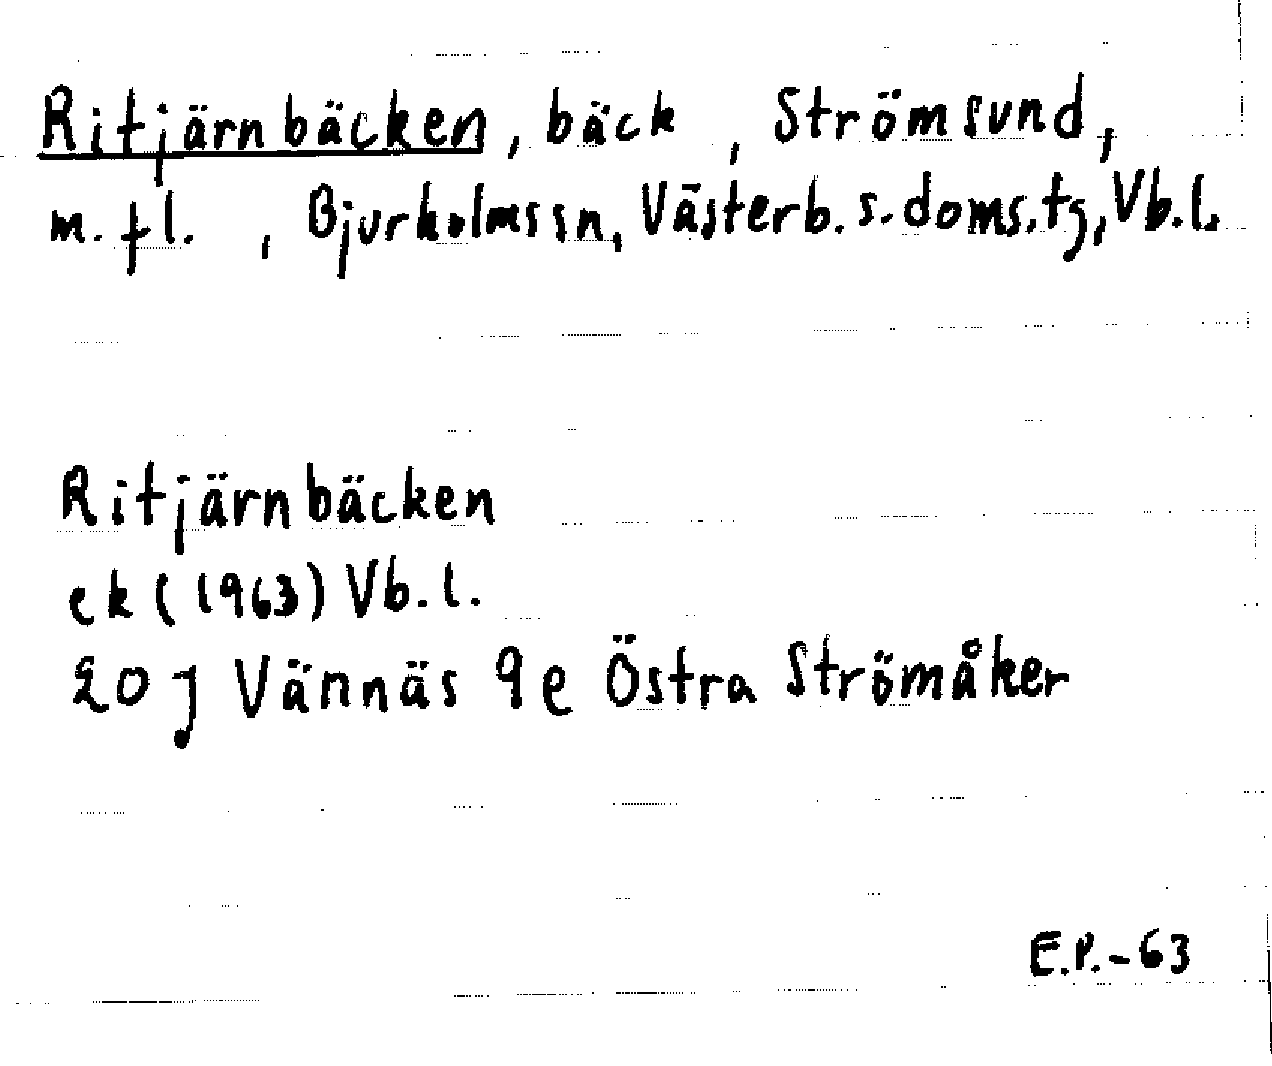 Ritjärnbäcken, bäck, Strömsund,
m.fl., Bjurholms sn, Västerb. s. doms. tg, Vb.l.
Ritjärnbäcken
ek (1963) Vb.l.
20 J Vännäs 9 e Östra Strömåker
E.P.-63